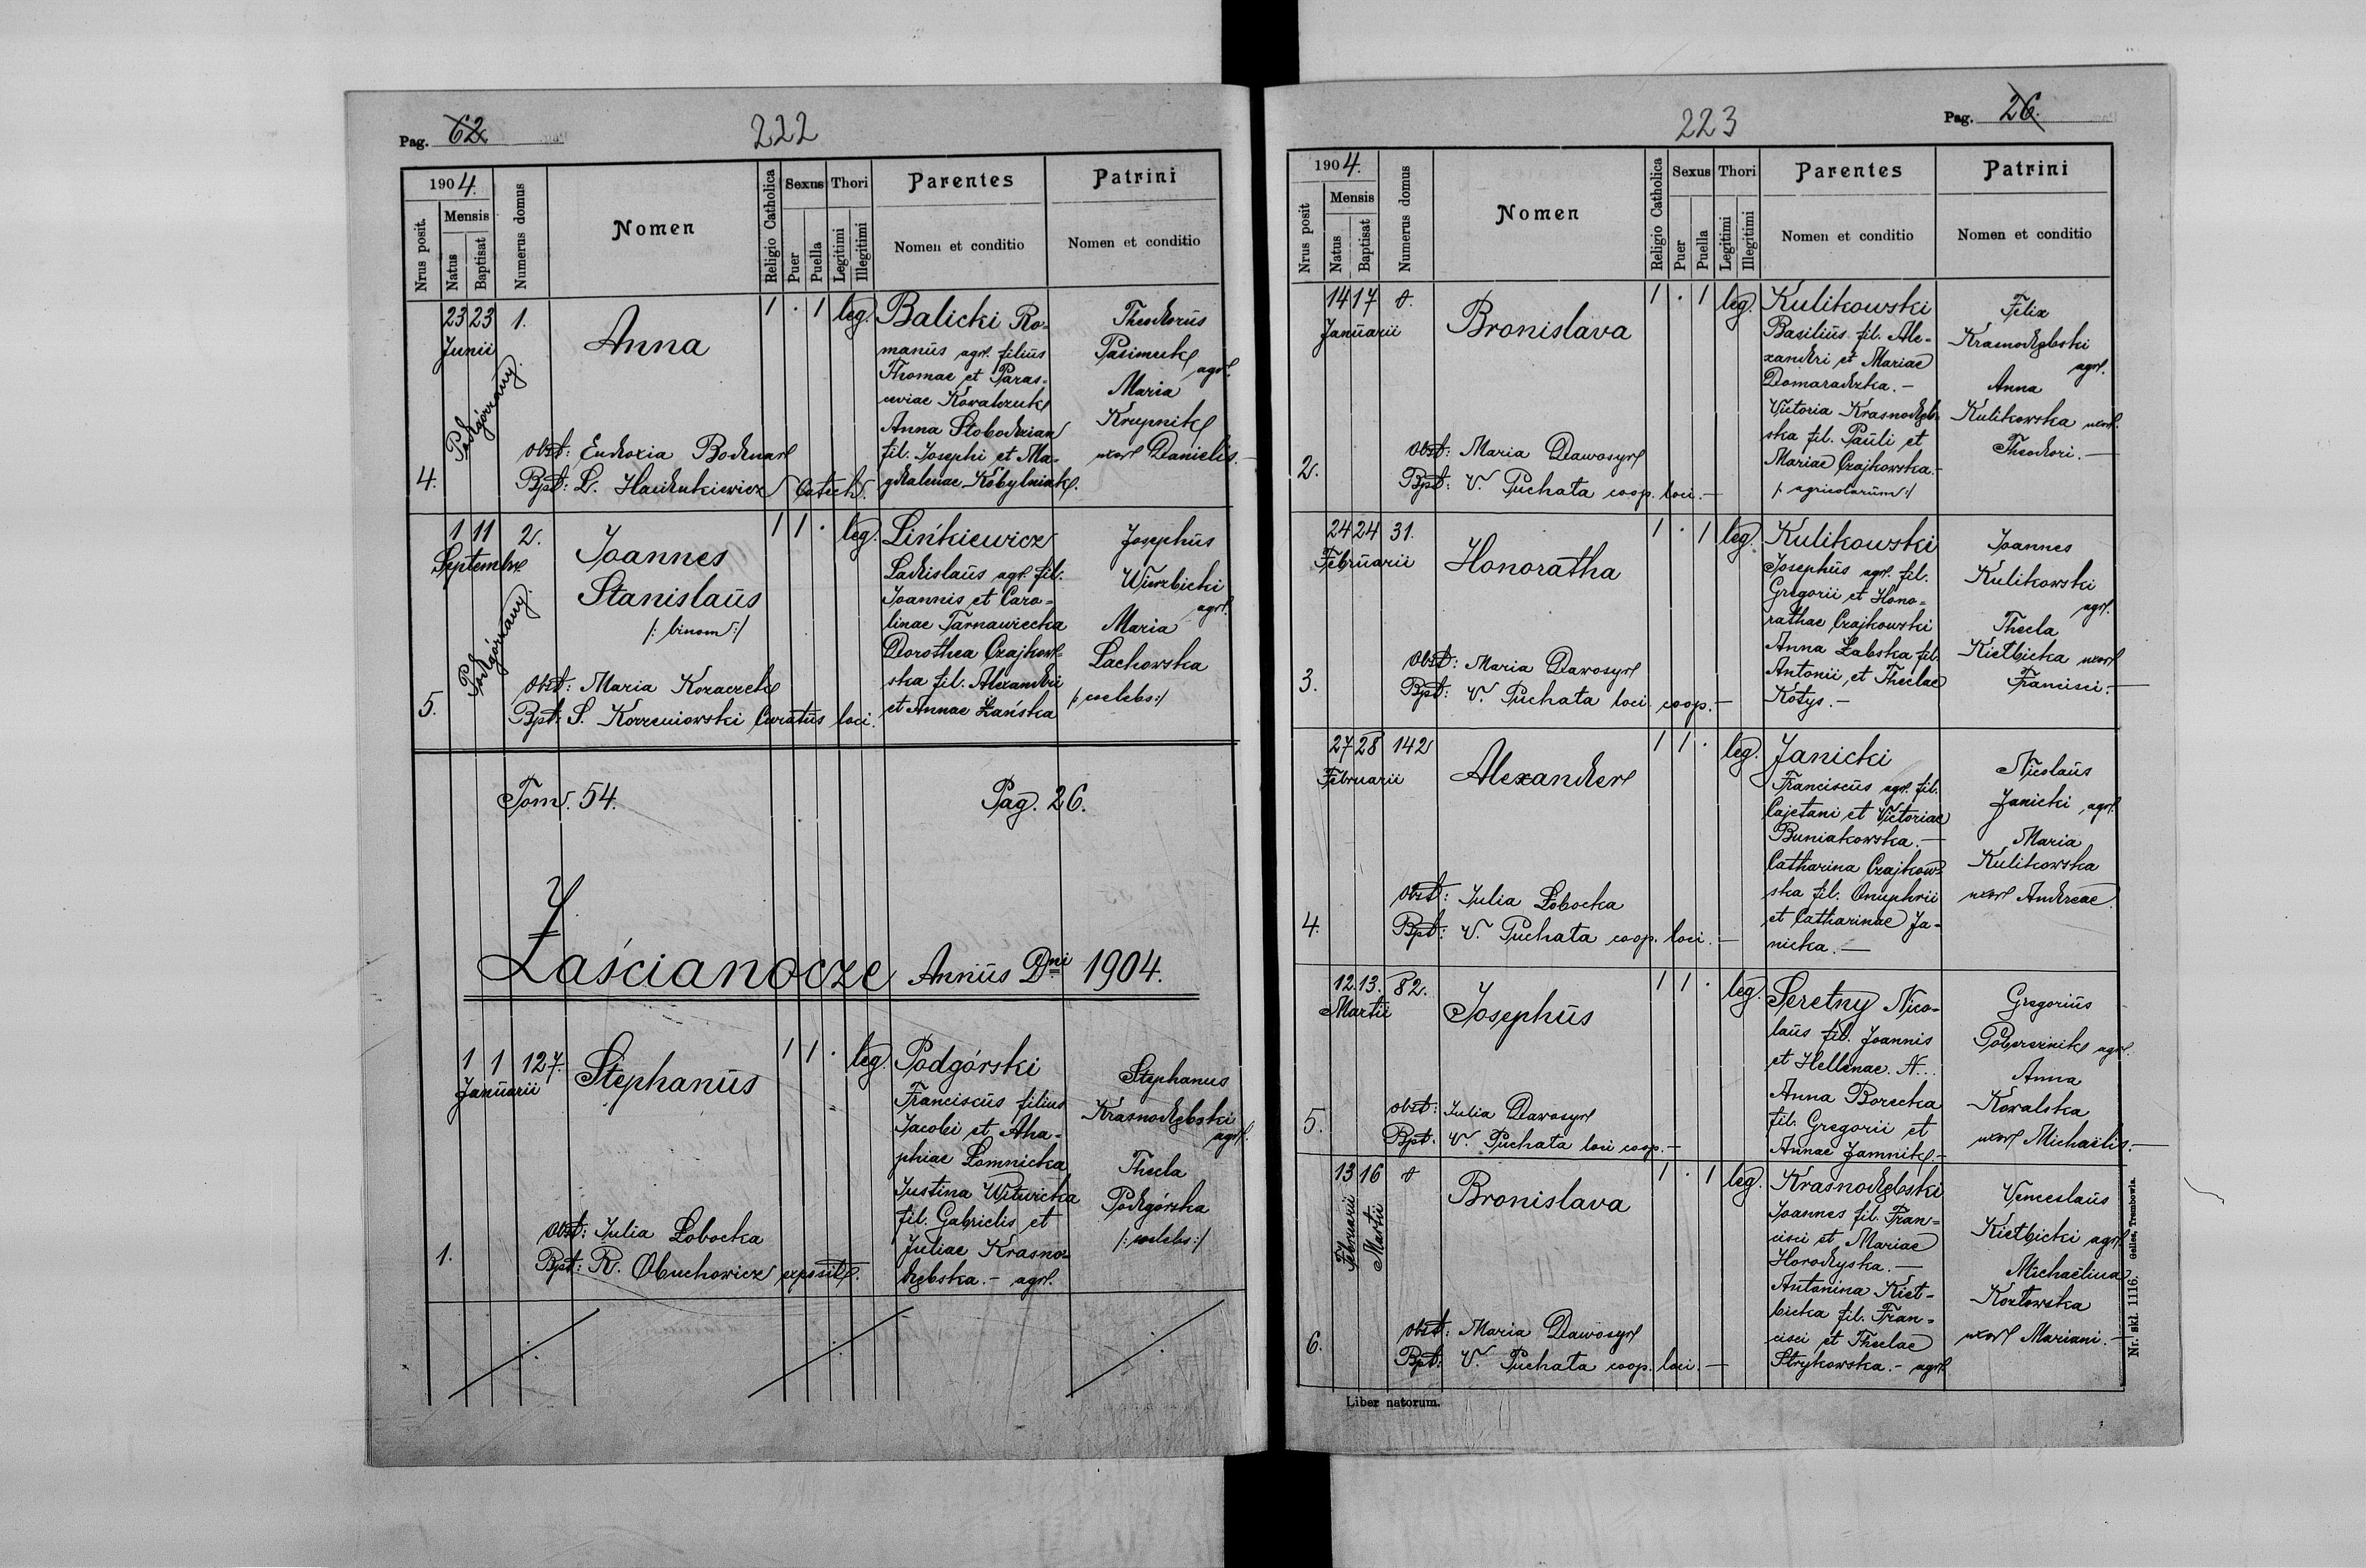 Pag. 62
222
1904.
Nrus posit.
Mensis
Natus
Baptisat
Numerus domus
Nomen
Religio Catholica
Sexus
Puer
Puella
Thori
Legitimi
Illegitimi
Parentes
Nomen et conditio
Patrini
Nomen et conditio
4.
23 23 1.
Junii
Podgórzany.
Anna
1 . 1 leg.
Balicki Ro-
manus agr. filius
Thomae et Paras-
ceviae Kowalczuk
Anna Słobodzian
fil. Josephi et Ma-
gdalenae Kobylniak.
Theodorus
Pasimuk
agr.
Maria
Krupnik
uxor Danielis.-
Obst: Eudoxia Bodnar
Bpt: L. Hauchukiewicz Catech.
5.
1 11 2.
Septembr
Podgórzany.
Joannes
Stanislaus
/: binom :/
1 1 . leg.
Lińkiewicz
Ladislaus agr. fil.
Joannis et Caro-
linae Tarnawiecka
Dorothea Czajkow-
ska fil. Alexandri
et Annae Łańska
Josephus
Wierzbicki
agr.
Maria
Lachowska
/: coelebs :/
Obst: Maria Kozaczek
Bpt: S. Korzeniowski Curatus loci.
Tom. 54.
Pag. 26.
Y
Łaścianocze Annus Dni 1904.
1.
1 1 127.
Januarii
Stephanus
1 1 . leg.
Podgórski
Franciscus filius
Jacobi et Aha-
phiae Łomnicka
Justina Witwicka
fil. Gabrielis et
Juliae Krasno-
dębska. - agr.
Stephanus
Krasnodębski
agr.
Thecla
Podgórska
/: coelebs :/
Obst: Julia Łobocka
Bpt: R. Obuchowicz exposit.
Pag. 26.
223
1904.
Nrus posit
Mensis
Natus
Baptisat
Numerus domus
Nomen
Religio Catholica
Sexus
Puer
Puella
Thori
Legitimi
Illegitimi
Parentes
Nomen et conditio
Patrini
Nomen et conditio
2.
14 17
Januarii
Bronislava
1 . 1 leg.
Kulikowski
Basilius fil. Ale-
xandri et Mariae
Domaradzka. -
Victoria Krasnodęb-
ska fil. Pauli et
Mariae Czajkowska.-
/: agricolarum :/
Felix
Krasnodębski
agr.
Anna
Kulikowska uxor.
Theodori. -
Obst: Maria Dawosyr
Bpt: V. Puchata coop. loci. -
3.
24 24 31.
Februarii
Honoratha
1 . 1 leg.
Kulikowski
Josephus agr. fil.
Gregorii et Hono-
rathae Czajkowski
Anna Łabska fil.
Antonii et Theclae
Kotys. -
Joannes
Kulikowski
agr.
Thecla
Kiełbicka uxor
Francisci. -
Obst: Maria Dawosyr
Bpt: V. Puchata loci coop. -
4.
27 28 142
Februarii
Alexander
1 1 . leg.
Janicki
Franciscus agr. fil.
Cajetani et Victoriae
Buniakowska. -
Catharina Czajkow-
ska fil. Onuphrii
et Catharinae Ja-
nicka. -
Nicolaus
Janicki agr.
Maria
Kulikowska
uxor Andreae.
Obst: Julia Łobocka
Bpt: V. Puchata coop. loci. -
5.
12. 13. 82.
Martii
Josephus
1 1 . leg.
Seretny Nico-
laus fil. Joannis
et Hellenae N...
Anna Borecka
fil. Gregorii et
Annae Jamnik. -
Gregorius
Pobereznik agr.
Anna
Kowalska
uxor Michaelis. -
Obst: Julia Dawosyr
Bpt. V. Puchata loci coop. -
6.
13 16
Februarii
Martii
Bronislava
1 . 1 leg.
Krasnodębski
Joannes fil. Fran-
cisci et Mariae
Horodyska. -
Antonina Kieł-
bicka fil. Fran-
cisci et Theclae
Strykowska. - agr.
Venceslaus
Kiełbicki agr.
Michaëlina
Kozłowska
uxor Mariani. -
Obst: Maria Dawosyr
Bpt: V. Puchata coop. loci. -
Liber natorum.
Nr. skł. 1116. Gelles, Trembowla.